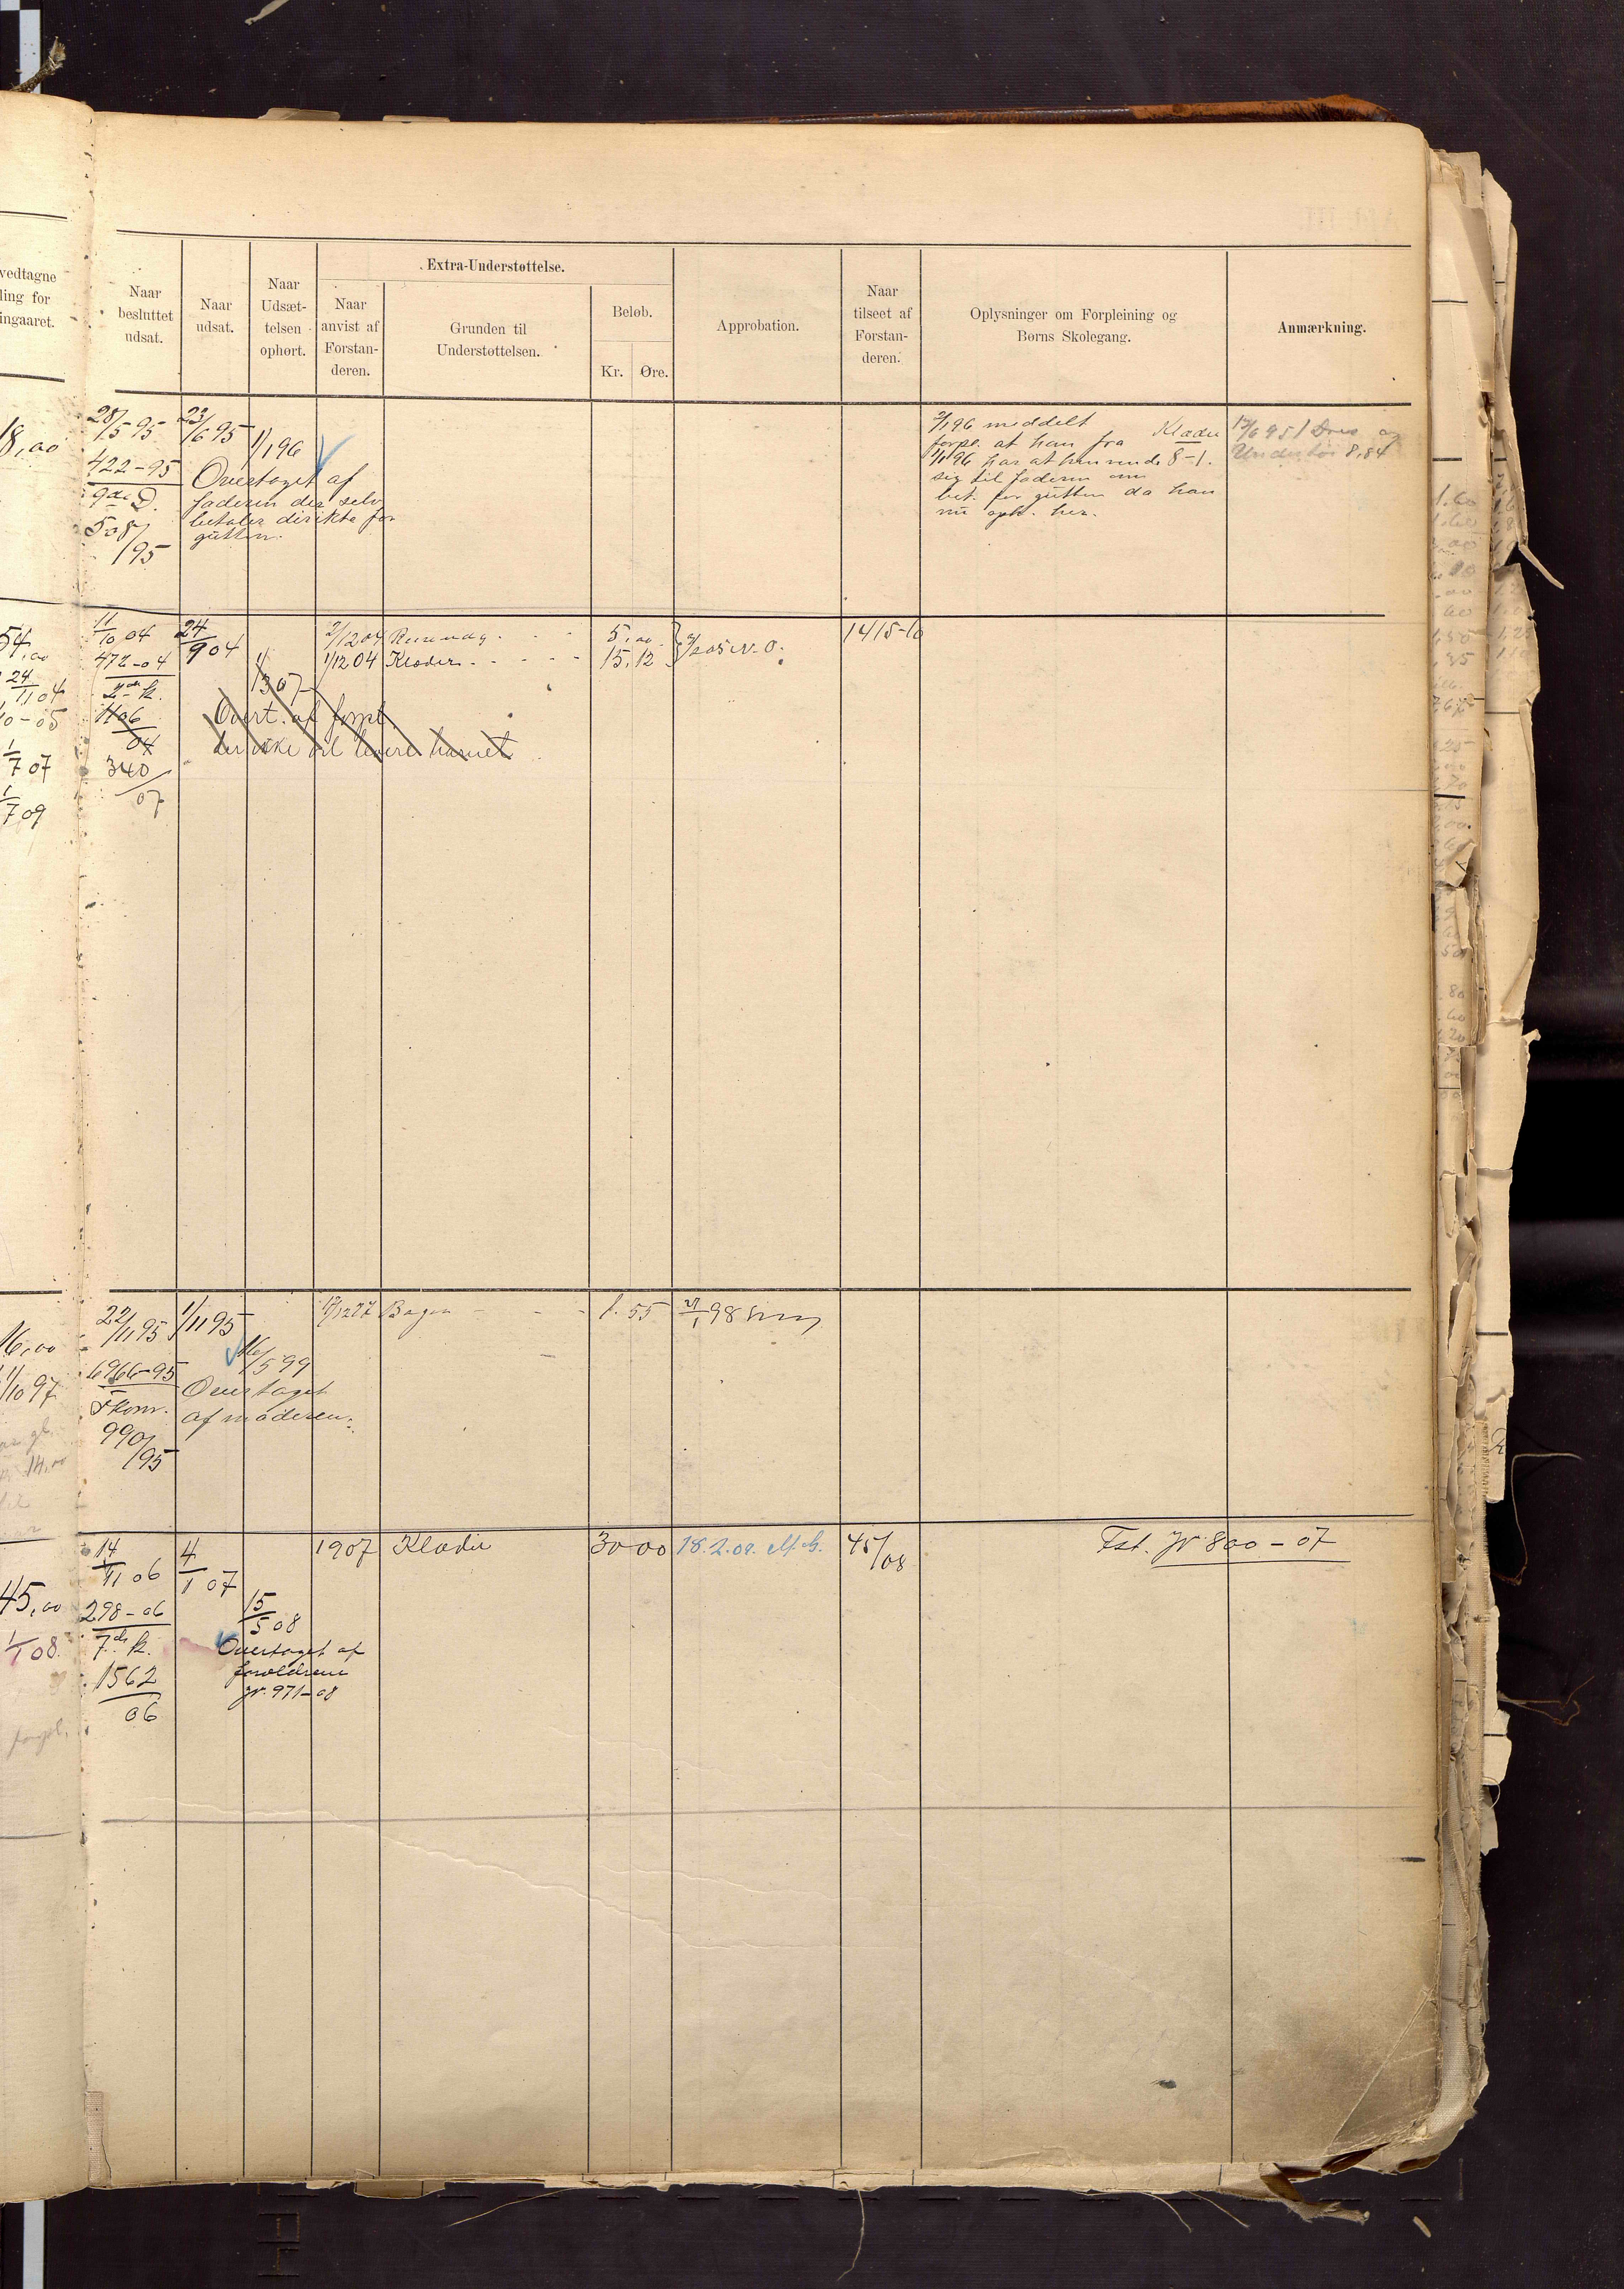 vedtagne
ling for
ingaaret.
Naar
besluttet
udsat.
Naar
udsat.
Naar
Udsæt-
telsen
ophørt.
Extra-Understøttelse.
Naar
anvist af
Forstan-
deren.
Grunden til
Understøttelsen.
Beløb.
Kr. Øre.
Approbation.
Naar
tilseet af
Forstan-
deren.
Oplysninger om Forpleining og
Børns Skolegang.
Anmærkning.
18,00
28/5 95
422-95
9de D.
508/
/95
23/6 95
1/1 96
Overtaget af
faderen der selv
betaler direkte for
gutten.
2/1 96 meddelt
forpl. at han fra
1/1 96 har at henvende
sig til faderen om
bet. for gutten da han
nu oph. her.
Klæder
8-1.
12/6 95 1 Dres og
Undertøi 8,84
54,00
24/11 04
10-05
1/7 07
1/7 09
11/10 04
472-04
2den k.
1106
04
340/
07
24/9 04
1/3 07
Overt. af forpl.
der ikke vil levere barnet
2/12 04
1/12 04 Klæder
5,00
15,12
1415-10
16,00
1/10 97
14,00
22/11 95
6966-95
Fkom.
990/
/95
1/11 95
16/5 99
Overtaget
af moderen.
1.55
98
45,00
1/1 08
forpl.
14/11 06
298-06
7de k.
1562
06
4/1 07
15/5 08
Overtaget af
forældrene
Jr. 971-08
1907 Klæder 30 00 18.2.09. 45/08
Fst. Jr 800-07